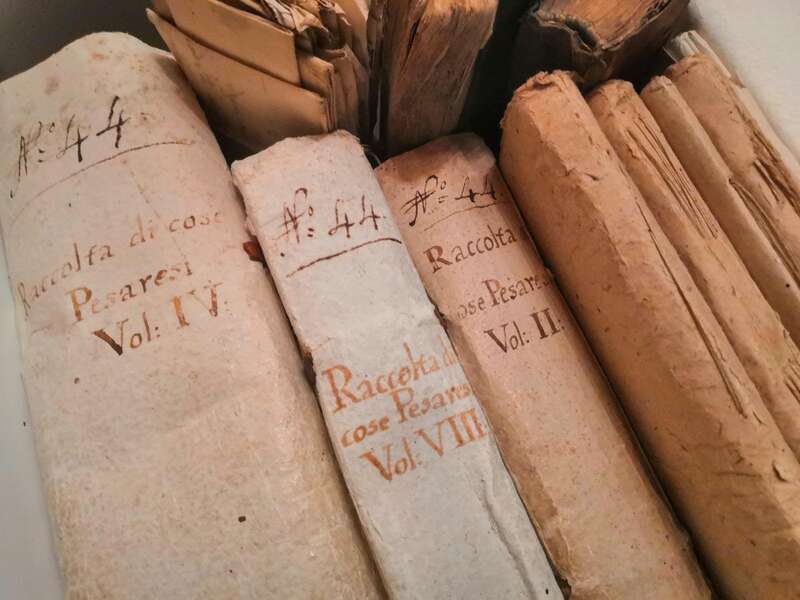 Nº: 44
Raccolta di cose
Pesaresi
Vol: IV.
Nº: 44
Raccolta di
cose Pesaresi
Vol: VIII.
Nº: 44
Raccolta
cose Pesaresi
Vol: II: